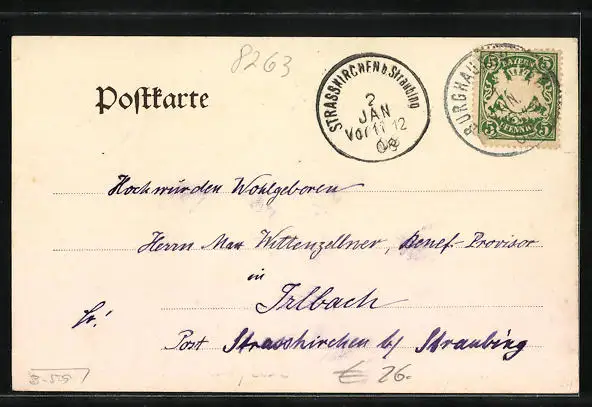 8263
STRASSKIRCHEN b Straubing
2
JAN
Vor 11 12
BURGHAU
BAYERN
5 5
5 5
PFENNIG
Postkarte
Hochwürden Wohlgeboren
Herrn Max Wittenzellner, Benef.-Provisor
in
Irlbach
fr!
Post Strasskirchen b/ Straubing
€ 26.-